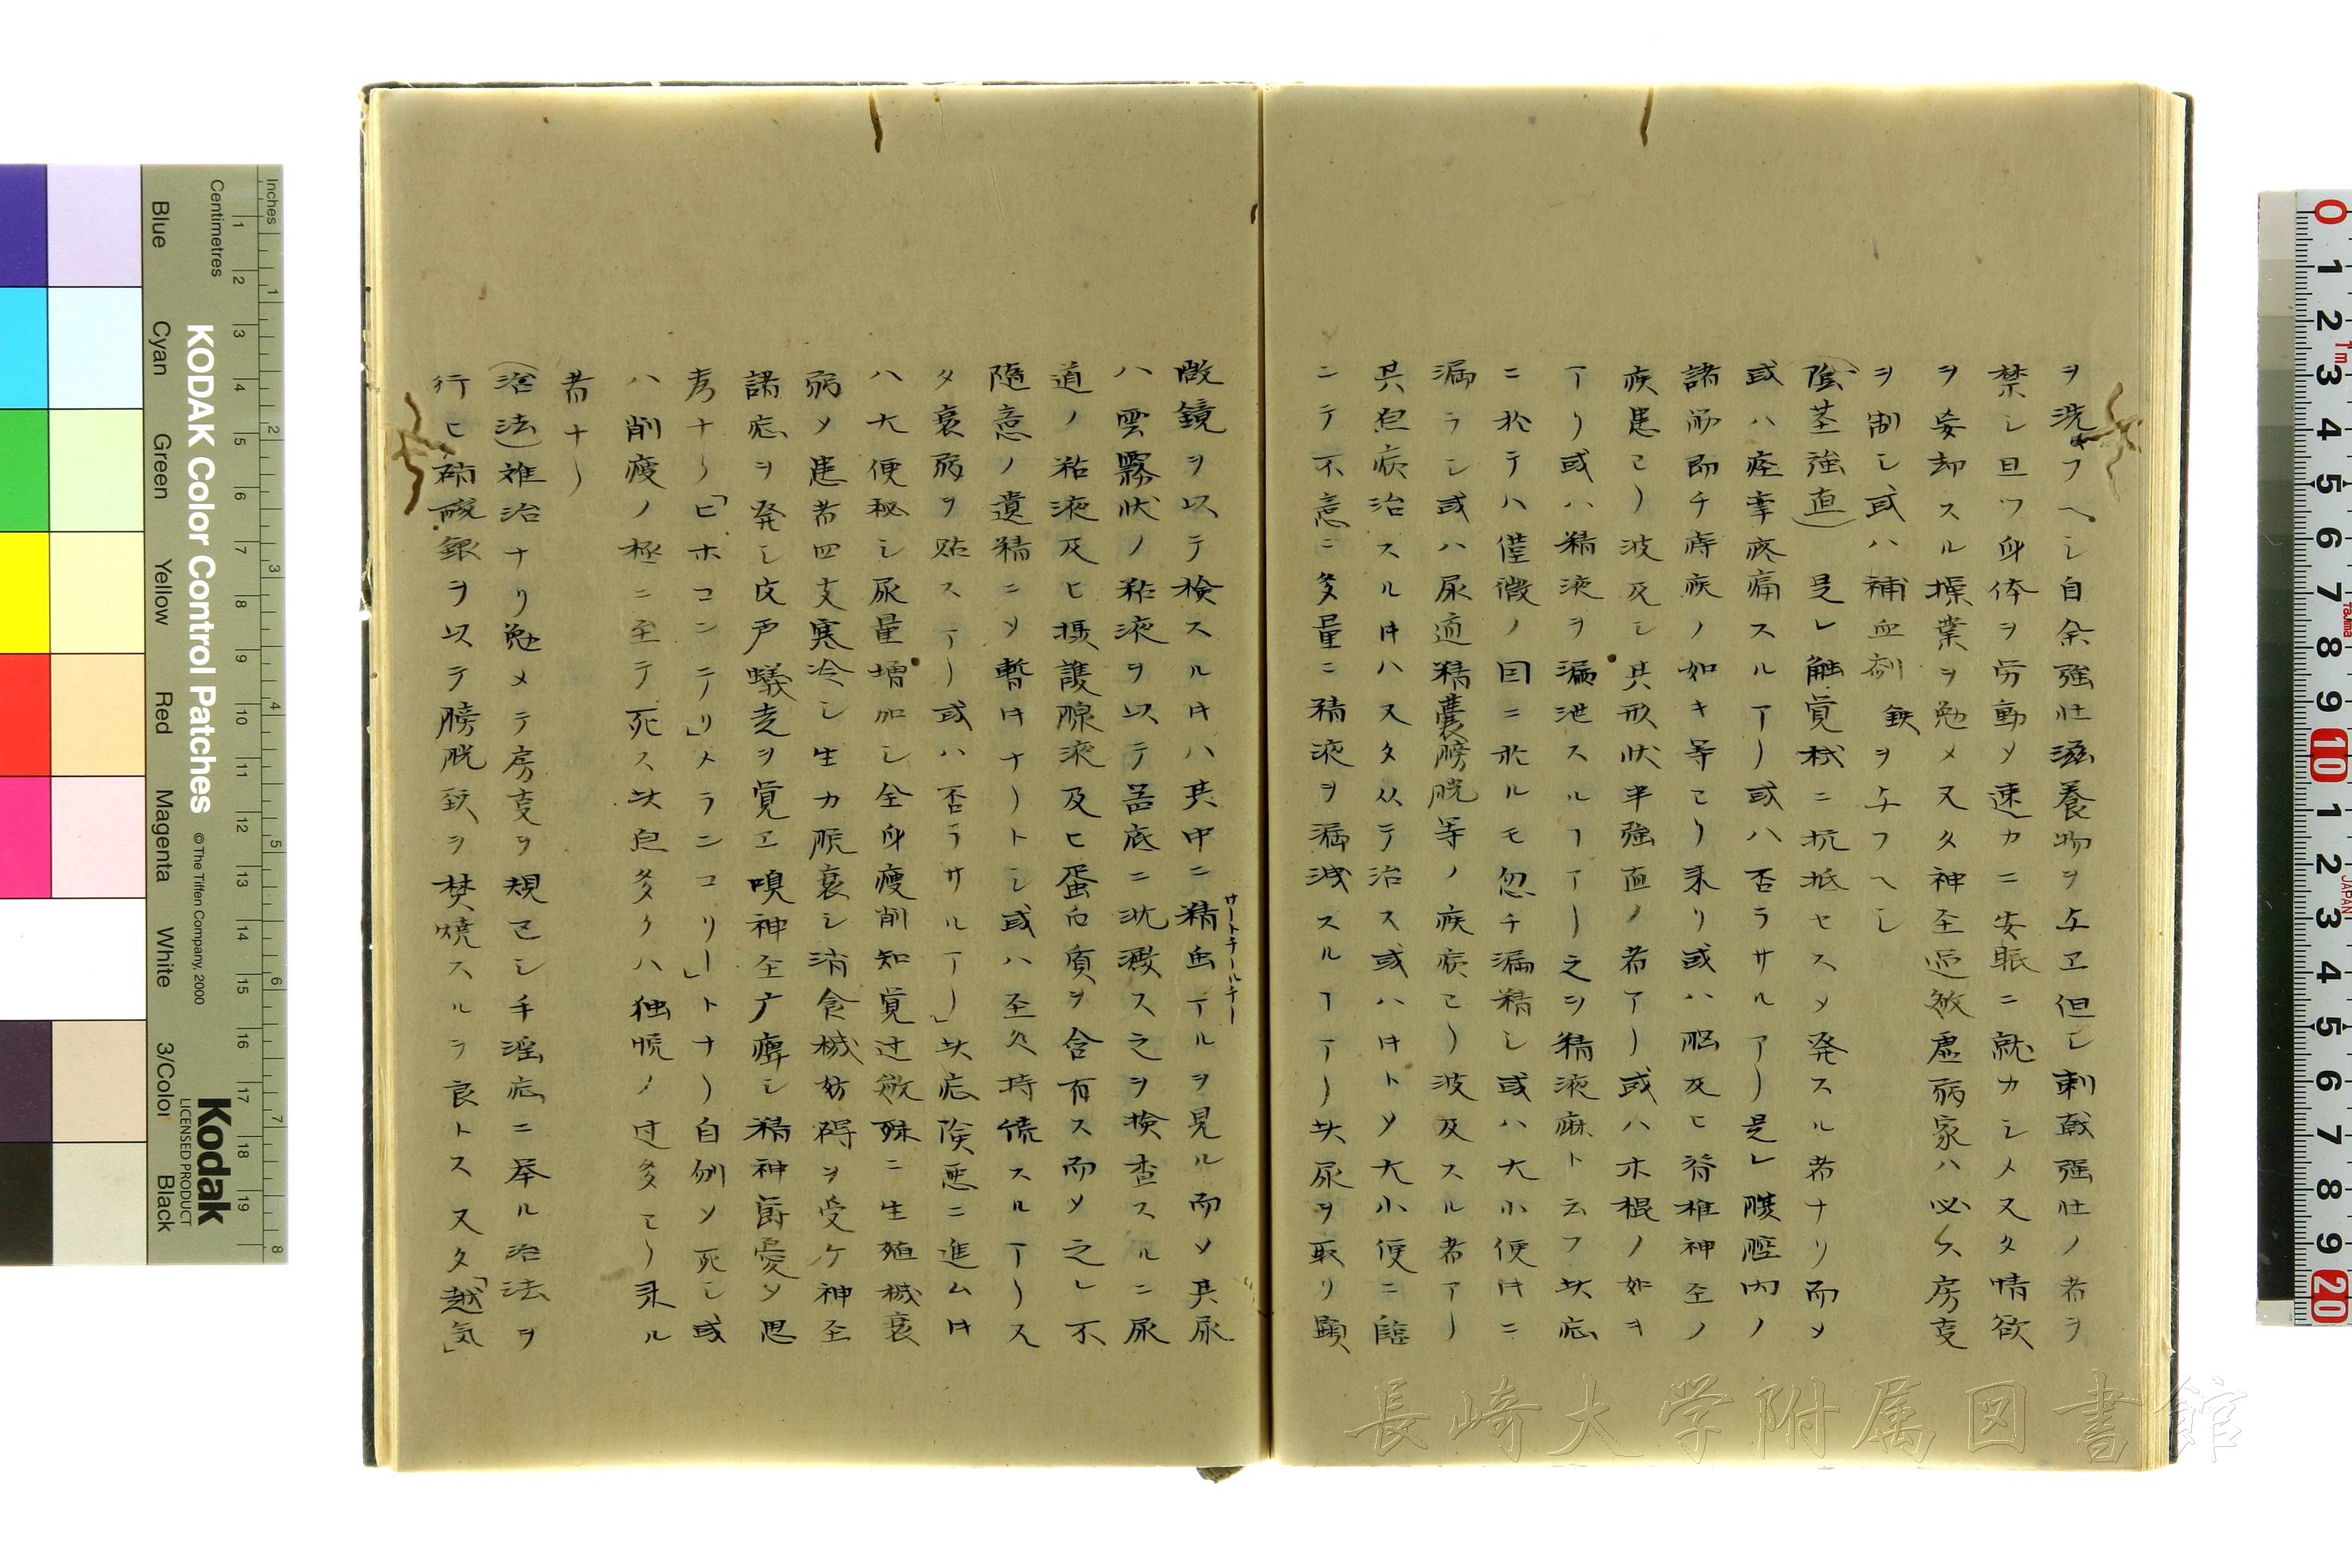 ヲ洗フヘシ自余強壮滋養物ヲ与ヱ但シ刺戟強壮ノ者ヲ
禁シ且ツ身体ヲ労動メ速カニ安眠ニ就カシメ又タ情欲
ヲ妄却スル操業ヲ勉メ又タ神至過敏虚弱家ハ必ス房支
ヲ制シ或ハ補血剤鉄ヲ与フヘシ
(陰茎強直)是レ触覚機ニ抗抵セスメ発スル者ナリ而メ
或ハ痙挛疼痛スルヿ或ハ否ラサルヿ是レ膜腔内ノ
諸部即チ痔疾ノ如キ等ヨリ来リ或ハ脳及ヒ脊椎神至ノ
疾患ヨリ波及シ其形状半強直ノ者アリ或ハ木棍ノ如キ
アリ或ハ精液ヲ漏泄スルヿアリ之ヲ精液麻ト云フ此症
ニ於テハ僅微ノ因ニ於ルモ忽チ漏精シ或ハ大小便時ニ
漏ラシ或ハ尿道精嚢膀胱等ノ疾病ヨリ波及スル者アリ
其原病治スル時ハ又タ从テ治ス或ハ時トメ大小便ニ臨
ニテ不意ニ多量ニ精液ヲ漏洩スルヿアリ此尿ヲ取リ顕
微鏡ヲ以テ検スル時ハ其中ニ精虫アルヲ見ル而メ其尿
ハ雲霧状ノ粘液ヲ以テ器底ニ沈澱ス之ヲ検査スルニ尿
道ノ粘液及ヒ摂護腺液及ヒ蛋白質ヲ含有ス而メ之レ不
随意ノ遺精ニメ暫時ナリトシ或ハ至久持続スルヿアリ又
タ衰弱ヲ貽スヿ或ハ否ラサルヿ」此症険悪ニ進ム時
ハ大便秘シ尿量増加シ全身瘦削知覚过敏殊ニ生殖機衰
弱メ患者四支寒冷シ生力脱衰シ消食機妨碍ヲ受ケ神至
諸症ヲ発シ皮戸蟻走ヲ覚ヱ嗅神至广痺シ精神欝憂メ思
考ナリ「ヒホコンデリ」メランコリー」トナリ自刎メ死シ或
ハ削瘦ノ極ニ至テ死ス此原多クハ独慌ノ过多ヨリ来ル
者ナリ
(治法)难治ナリ勉メテ房支ヲ規忌シ手淫症ニ挙ル治法ヲ
行ヒ硝酸銀ヲ以テ膀胱頚ヲ焚焼スルヲ良トス又タ「越気」